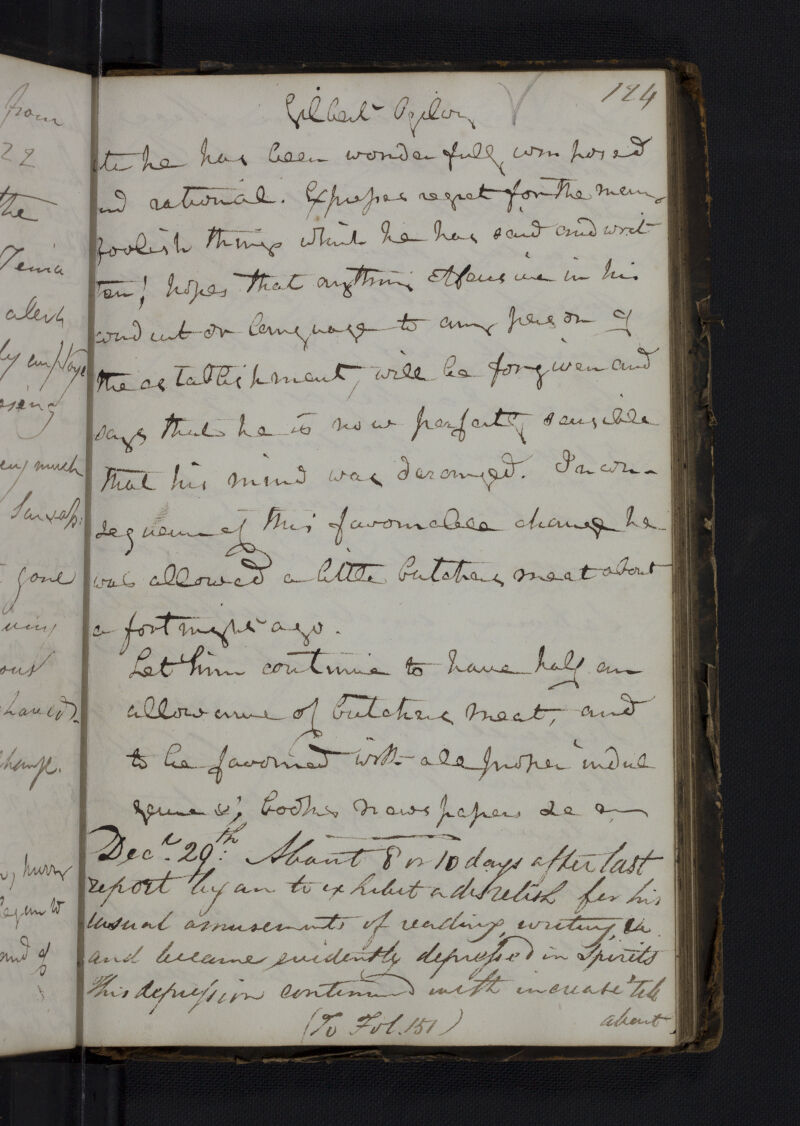 from
22
the
alert
ly employ
very much
gone
change.
begun to
and of
124
Gilbert Ogilvy
he has been wonderfully composed
and rational. Expresses regret for the many
foolish things which he has said and writ
ten; hopes that anything offensive in his
conduct or language to any person of
the establishment, will be forgiven and
says that he is now perfectly sensible
that his mind was deranged. In con-
sequence of this favourable change he
was allowed a little butchers meat about
a fortnight ago.
Let him continue to have half an
allowance of butchers meat, and
to be favoured with all proper indul
gences; books newspapers &c
Decr. 29th: About 8 or 10 days after last
report began to exhibit a disrelish for his
usual amusements of reading, writing, &c.
and became evidently depressed in Spirits
This depression continued with increase till
(To Fol. 151) about